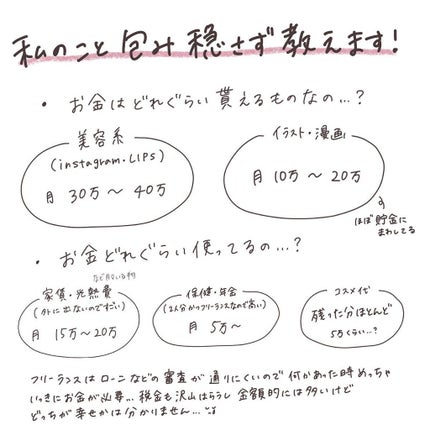 私のこと包み穏さず教えます!
・お金はどれぐらい貰えるものなの…?
美容系
(instagram・LIPS)
月 30万〜 40万
イラスト・漫画
月 10万 〜 20万
ほぼ貯金に
まわしてる
・お金どれぐらい使ってるの…?
家賃・光熱費
(外に出ないのですごい)
月 15万〜20万
保健・年金
(2人分かつフリーランスなので高い)
月 5万〜
コスメ代
残った分ほとんど
5万くらい…?
フリーランスはローンなどの審査が通りにくいので 何かあった時めっちゃ
いっきにお金が必要… 税金も沢山はらうし 金額的には多いけど
どっちが幸せかは分かりません…